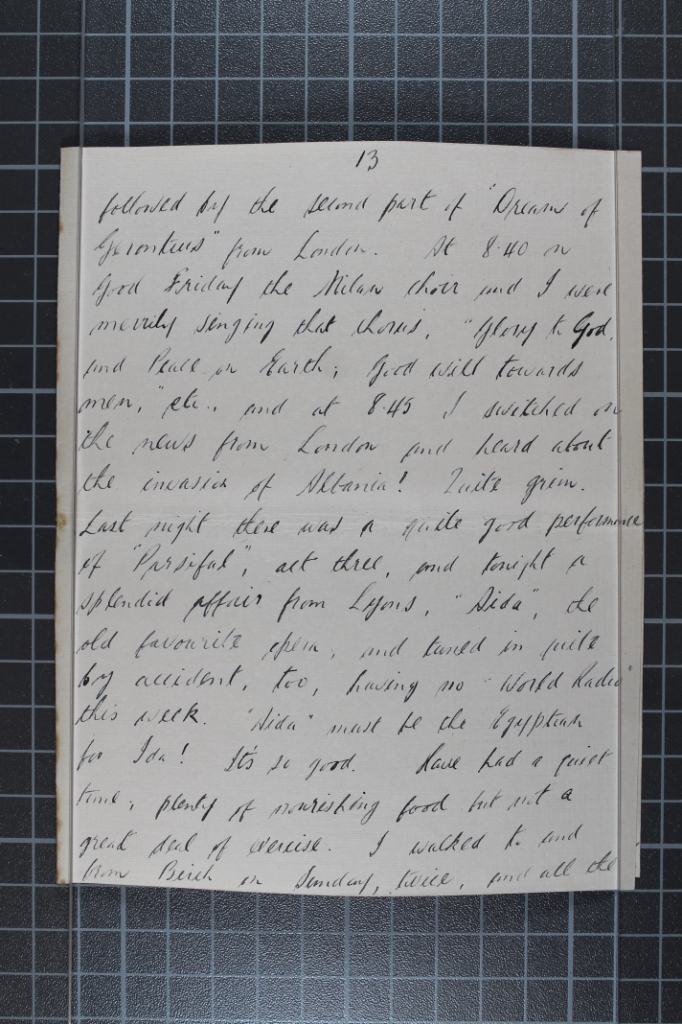 13
followed by the second part of "Dream of
Gerontius" from London. At 8.40 on
Good Friday the Milan choir and I were
merrily singing that chorus, "Glory to God,
and Peace on Earth; Good will towards
men," etc., and at 8.45 I switched on
the news from London and heard about
the invasion of Albania! Quite grim.
Last night there was a quite good performance
of "Parsifal", act three, and tonight a
splendid affair from Lyons, "Aida", the
old favourite opera, and tuned in quite
by accident, too, having no "World Radio"
this week. "Aida" must be the Egyptian
for Ida! It's so good. Have had a quiet
time, plenty of nourishing food but not a
great deal of exercise. I walked to and
from Birch on Sunday, twice, and all the